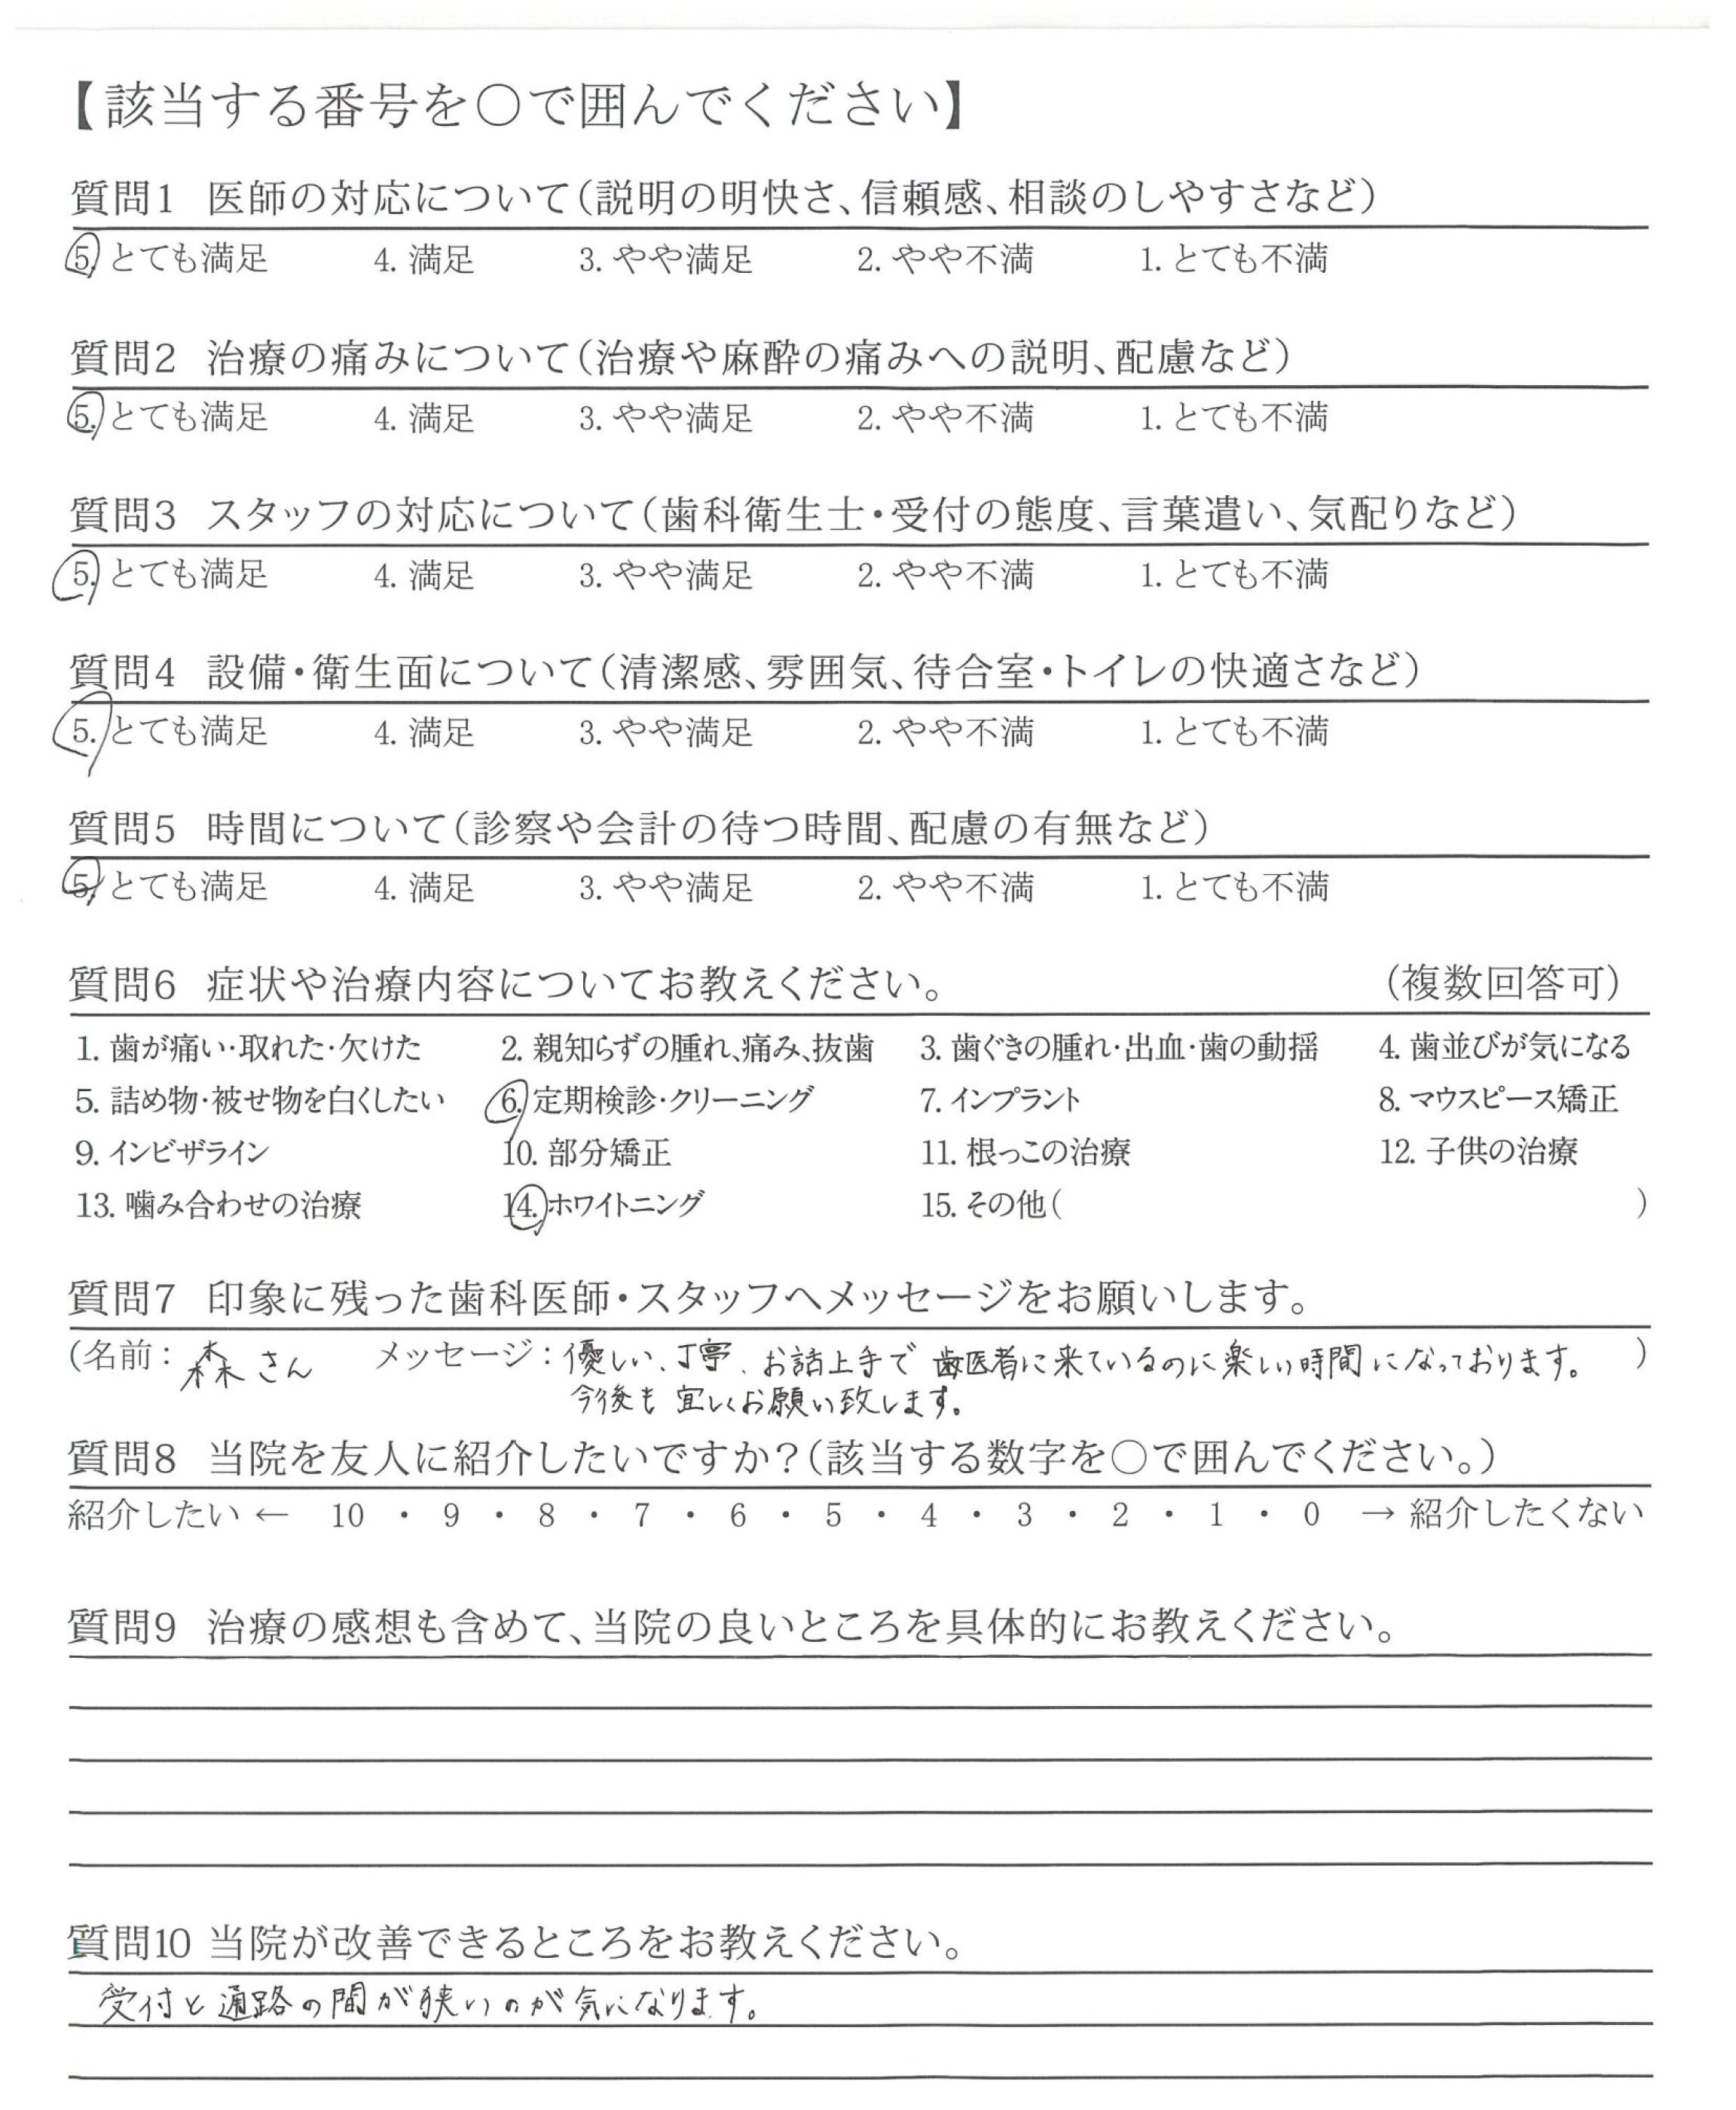 【該当する番号を〇で囲んでください】
質問1 医師の対応について(説明の明快さ、信頼感、相談のしやすさなど)
5. とても満足 4. 満足 3. やや満足 2. やや不満 1. とても不満
質問2 治療の痛みについて(治療や麻酔の痛みへの説明、配慮など)
5. とても満足 4. 満足 3. やや満足 2. やや不満 1. とても不満
質問3 スタッフの対応について(歯科衛生士・受付の態度、言葉遣い、気配りなど)
5. とても満足 4. 満足 3. やや満足 2. やや不満 1. とても不満
質問4 設備・衛生面について(清潔感、雰囲気、待合室・トイレの快適さなど)
5. とても満足 4. 満足 3. やや満足 2. やや不満 1. とても不満
質問5 時間について(診察や会計の待つ時間、配慮の有無など)
5. とても満足 4. 満足 3. やや満足 2. やや不満 1. とても不満
質問6 症状や治療内容についてお教えください。 (複数回答可)
1. 歯が痛い・取れた・欠けた 2. 親知らずの腫れ、痛み、抜歯 3. 歯ぐきの腫れ・出血・歯の動揺 4. 歯並びが気になる
5. 詰め物・被せ物を白くしたい 6. 定期検診・クリーニング 7. インプラント 8. マウスピース矯正
9. インビザライン 10. 部分矯正 11. 根っこの治療 12. 子供の治療
13. 噛み合わせの治療 14. ホワイトニング 15. その他( )
質問7 印象に残った歯科医師・スタッフへメッセージをお願いします。
(名前: 森さん メッセージ: 優しい、丁寧、お話上手で 歯医者に来ているのに楽しい時間になっております。 )
今後も 宜しくお願い致します。
質問8 当院を友人に紹介したいですか?(該当する数字を〇で囲んでください。)
紹介したい ← 10 ・ 9 ・ 8 ・ 7 ・ 6 ・ 5 ・ 4 ・ 3 ・ 2 ・ 1 ・ 0 → 紹介したくない
質問9 治療の感想も含めて、当院の良いところを具体的にお教えください。
質問10 当院が改善できるところをお教えください。
受付と通路の間が狭いのが気になります。